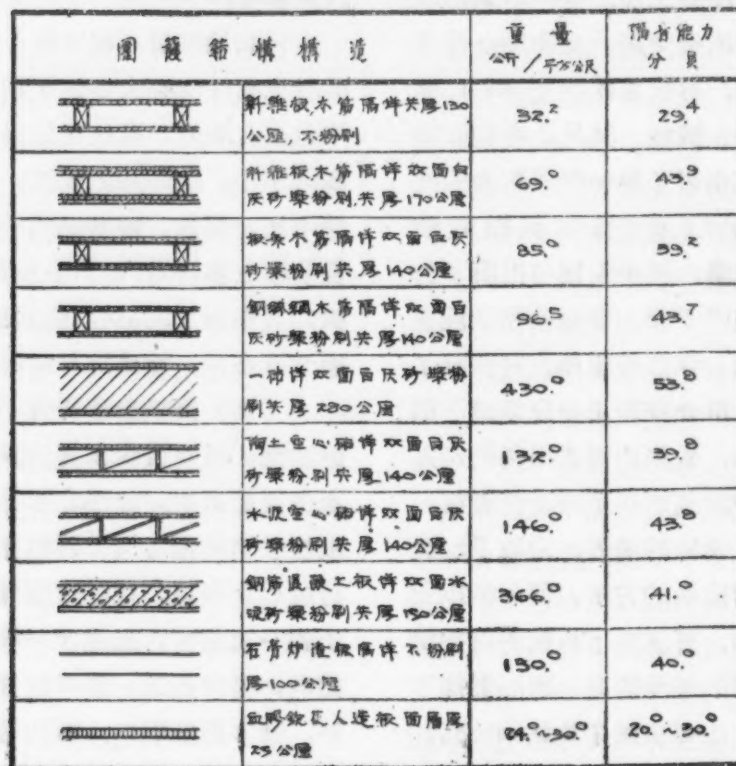 圍護結構構造
重量
公斤/平方公尺
隔音能力
分貝
纖維板木筋隔牆共厚130
公厘，不粉刷
32.2
29.4
纖維板木筋隔牆双面白
灰砂漿粉刷共厚170公厘
69.0
43.9
板条木筋隔牆双面白灰
砂漿粉刷共厚140公厘
85.0
39.2
鋼絲網木筋隔牆双面白
灰砂漿粉刷共厚140公厘
96.5
43.7
一砖牆双面白灰砂漿粉
刷共厚280公厘
430.0
53.8
陶土空心砖牆双面白灰
砂漿粉刷共厚140公厘
132.0
39.8
水泥空心砖牆双面白灰
砂漿粉刷共厚140公厘
146.0
43.8
鋼筋混凝土板牆双面水
泥砂漿粉刷共厚150公厘
366.0
41.0
石膏炉渣板隔牆不粉刷
厚100公厘
130.0
40.0
人造板面層厚
25公厘
24.0~30.0
20.0~30.0